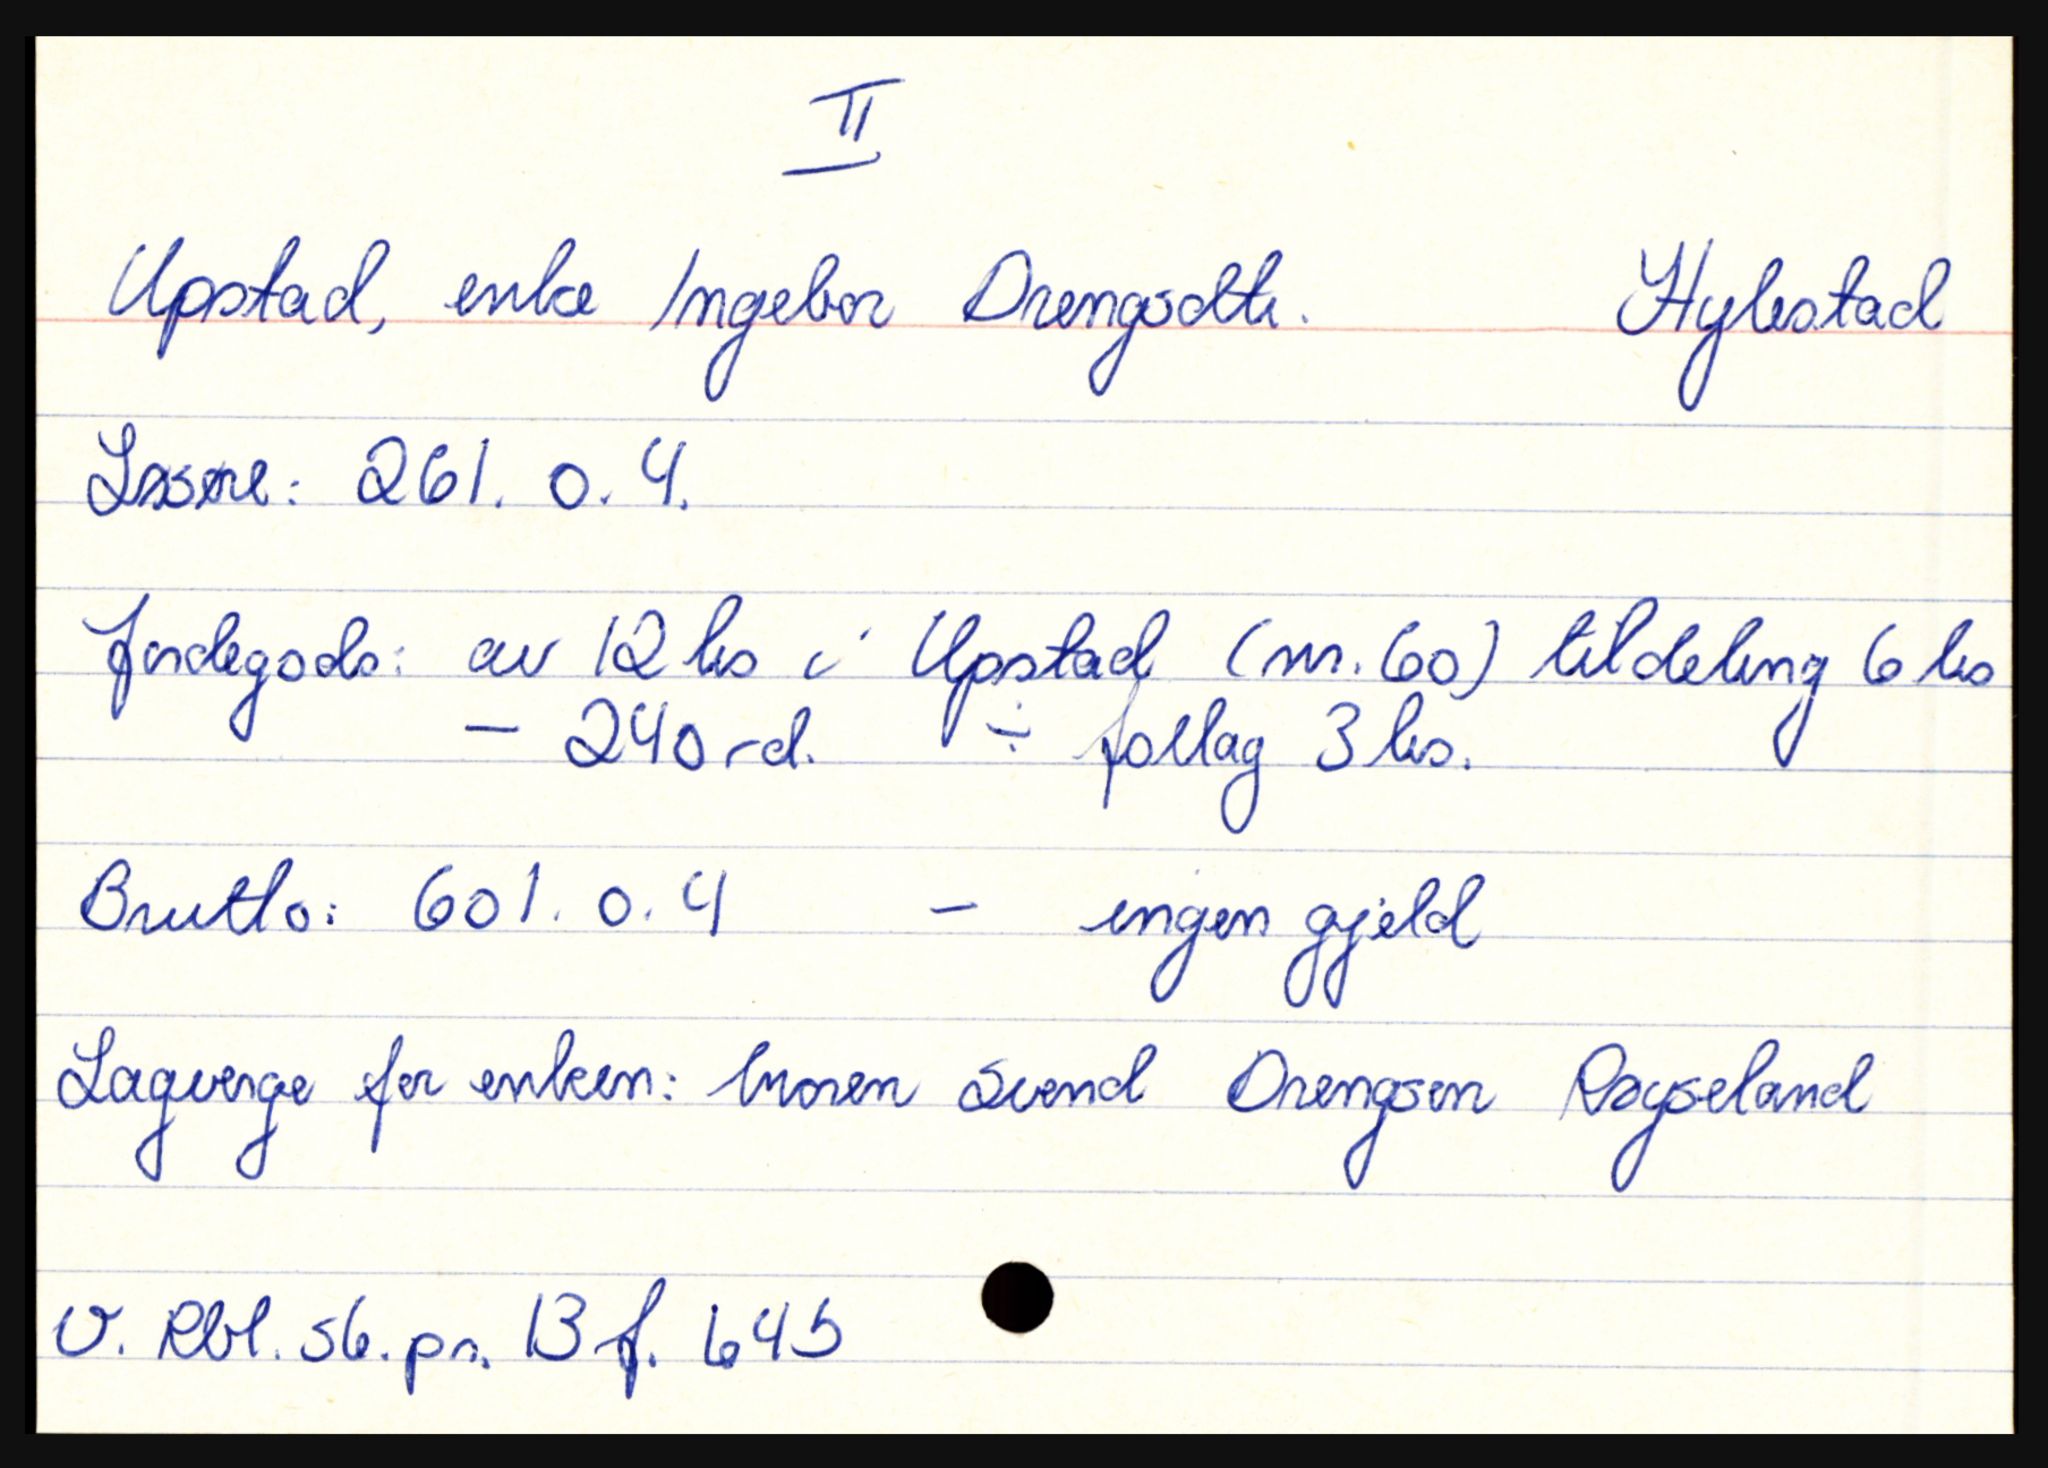 II
Upstad, enke Ingebor Drengsdtr. Hylestad
Løsøre: 261. 0. 4.
Jordegods: av 12 ks i Upstad (nr. 60) tildeling 6 ks
- 240 rd. ÷ follag 3 ks.
Brutto: 601. 0. 4 - ingen gjeld
Lagverge for enken: broren Svend Drengsen Røyseland
V. Rbl. sk. pr. 13 f. 645